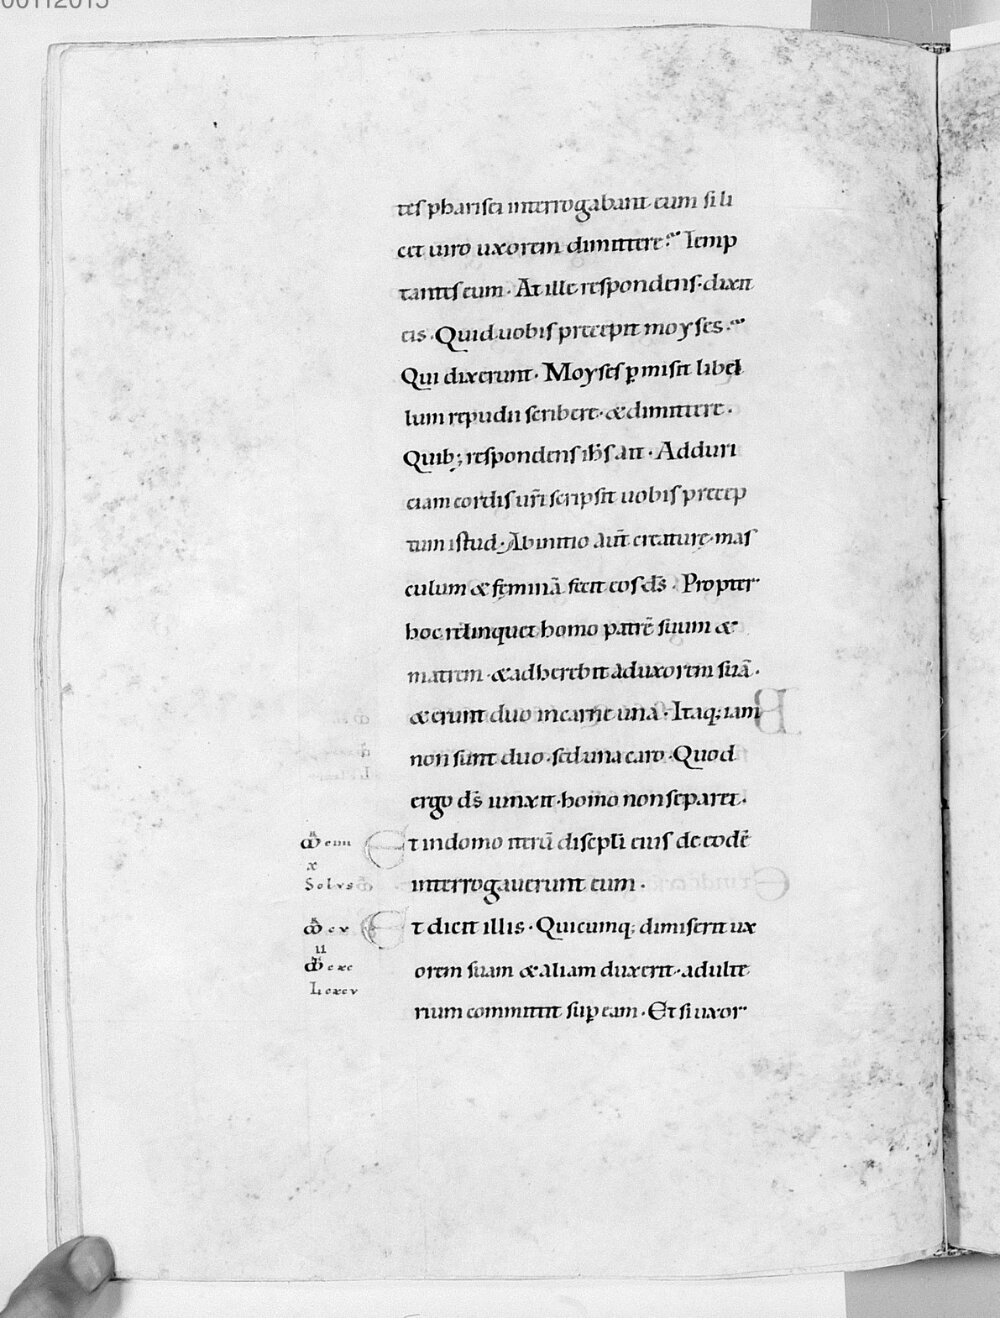 00112015
tes pharisei interrogabant eum si li
cet uiro uxorem dimittere· Temp
tantes eum· At ille respondens· dixit
eis· Quid uobis precepit moyses·
Qui dixerunt· Moyses ꝑmisit libel
lum repudii scribere· & dimittere·
Quib; respondens ih̅s ait· Ad duri
ciam cordis ur̅i scripsit uobis precep
tum istud· Ab initio aut̅ creature· mas
culum & feminā fecit eos ds̅· Propter
hoc relinquet homo patrē suum &
matrem· & adherebit ad uxorem suā·
& erunt duo in carne una· Itaq; iam
non sunt duo· sed una caro· Quod
ergo ds̅ iunxit· homo non separet·
Et in domo iterū discipl̅i eius de eodē
x
Solus
interrogauerunt eum·
Et dicit illis· Quicumq; dimiserit ux
u
orem suam & aliam duxerit· adulte
L cxcv
rium committit suꝑ eam· Et si uxor